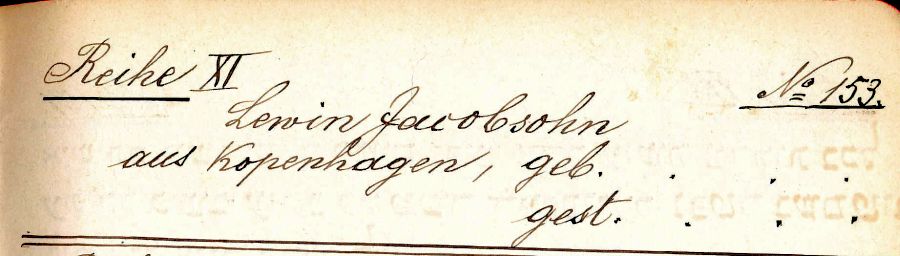 Reihe XI No 153.
Lewin Jacobsohn
aus Kopenhagen, geb. . . .
gest. . . .